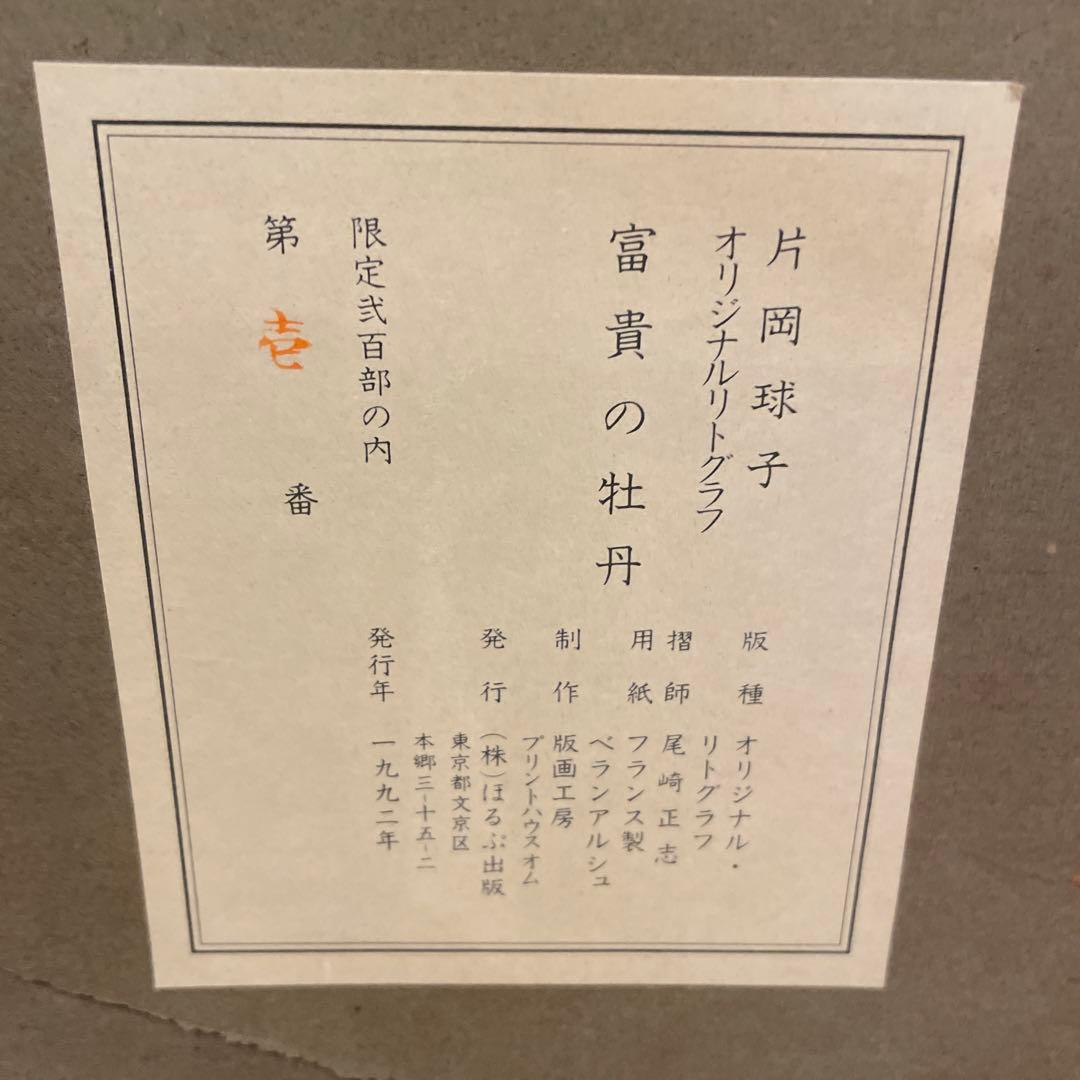 片岡球子
オリジナルリトグラフ
富貴の牡丹
限定弐百部の内
第壱番
版種 オリジナル・
リトグラフ
摺師 尾崎正志
用紙 フランス製
ベランアルシュ
制作 版画工房
プリントハウスオム
発行 (株)ほるぷ出版
東京都文京区
本郷三-十五-二
発行年 一九九二年